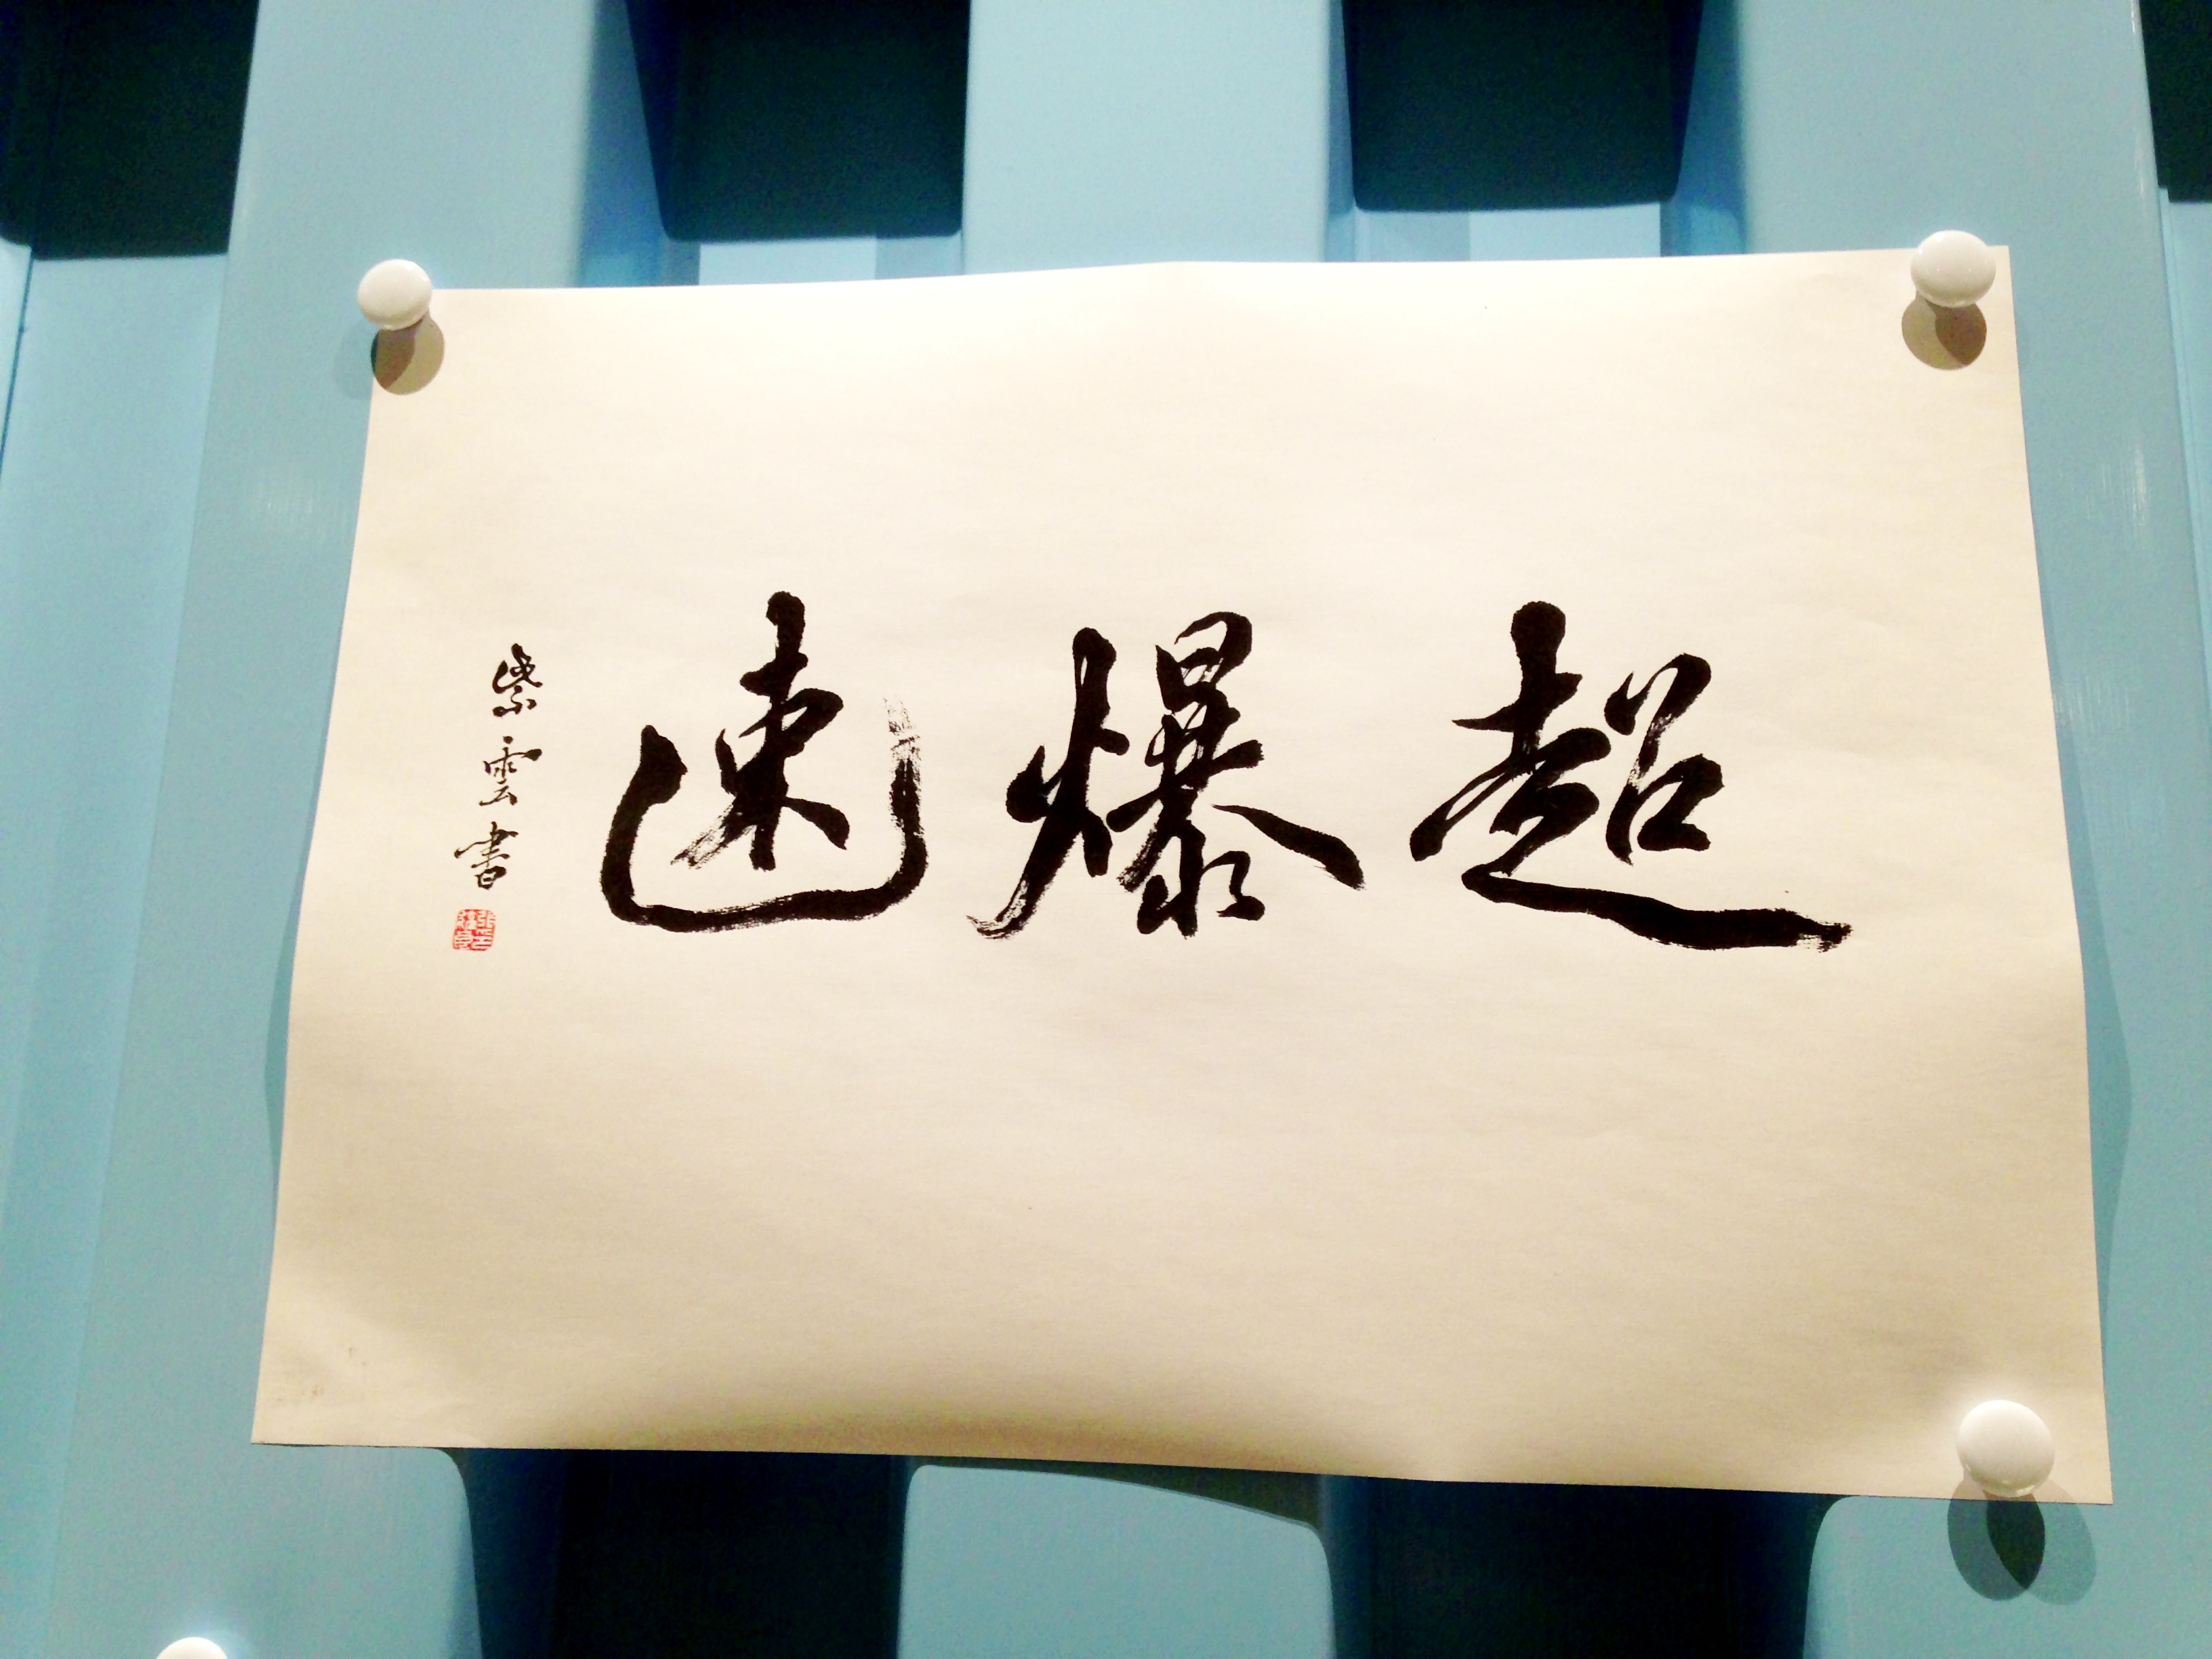 超爆速
紫雲書